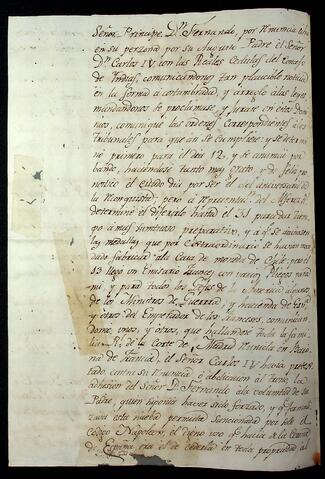 Señor Principe Dn. Fernando, por renuncia
en su persona por su Augusto Padre el Señor
Dn. Carlos IV con las Reales Cedulas del Consejo
de Indias, comunicandones tan plausible noticia
en la forma acostumbrada, y arreglo alas leyes
mandandones se proclamase, y jurase en estos Domi
nios, comuniqué las ordenes correspondientes alos
Tribunales para que asi se cumpliese: y se deter
no primero para el dia 12, y se anuncio por
bando, haciendose tanto muy grato, y de feliz pro
nostico el citado dia por ser el del aniversario de
la Reconquista; pero a representn. del Alferez
determiné el diferirlo hasta el 31 para dar tiem
po a mas suntuoso preparativo, y a qe. se
las medallas que por extraordinario se havian man
dado fabricar ala Casa de moneda de Chile: pero el
13 llegó un Emisario Frances con varios Pliegos para
mi y para todos los Gefes de la America algunos
de los Ministros de Guerra, y hacienda de
y otros del Emperador de los Franceses, comunican
dome unos, y otros, que hallandose toda la fami
lia Rl. de la Corte de Madrid reunida en Bayo
na de Francia, el Señor Carlos IV havia protes
tado contra su renuncia ó abdicacion al trono, la
adhesion del Señor D. Fernando ala voluntad de su
Padre, quien suponia haver sido forzado, y qe.
esta nueva permuta sancionada por
codigo Napoleon, el digno uso qe. hacia de la Corona
de España era el de cederla en toda propiedad al